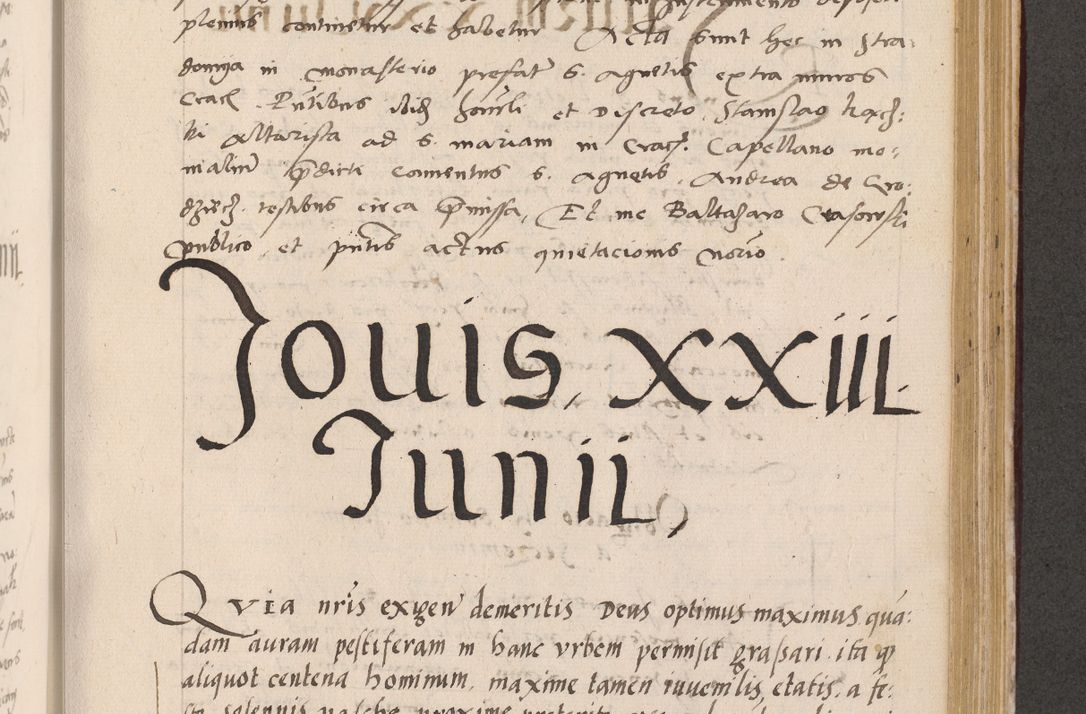 plenius continetur et habetur Acta sunt hec in Stra-
domya in monasterio prefat s. Agnetis extra muros
Crac. Pntibus ibid honli et Discreto Stanislao
ki Altarista ad s. mariam in Crac. Capellano mo-
nialiu pdicti Conuentus s. Agnetis. Andrea de Gro-
testibus circa pmissa, Et me Balthazaro
publico et pntis actus quietacionis norio
Jouis. XXIII.
Iunii,
Qvia nris exigen demeritis Deus optimus maximus qua-
dam auram pestiferam in hanc vrbem permisit grassari. ita q
aliquot centena hominum, maxime tamen iuuenilis etatis, a fe-
sto solennis pasche proxime